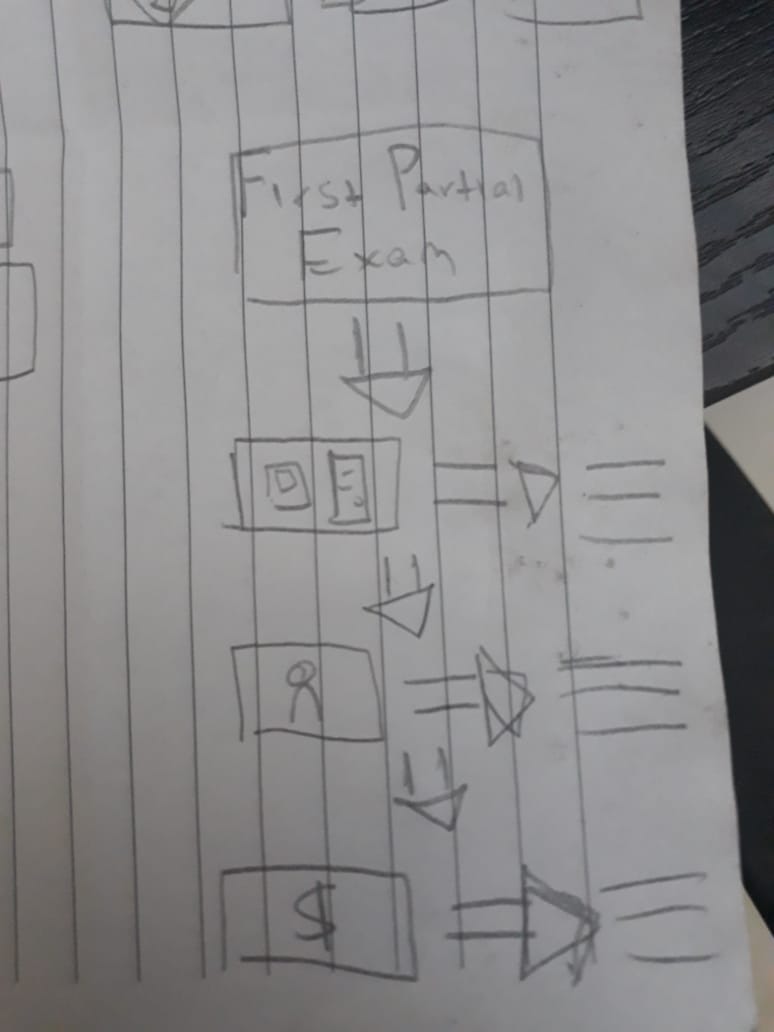 First Partial
Exam
$